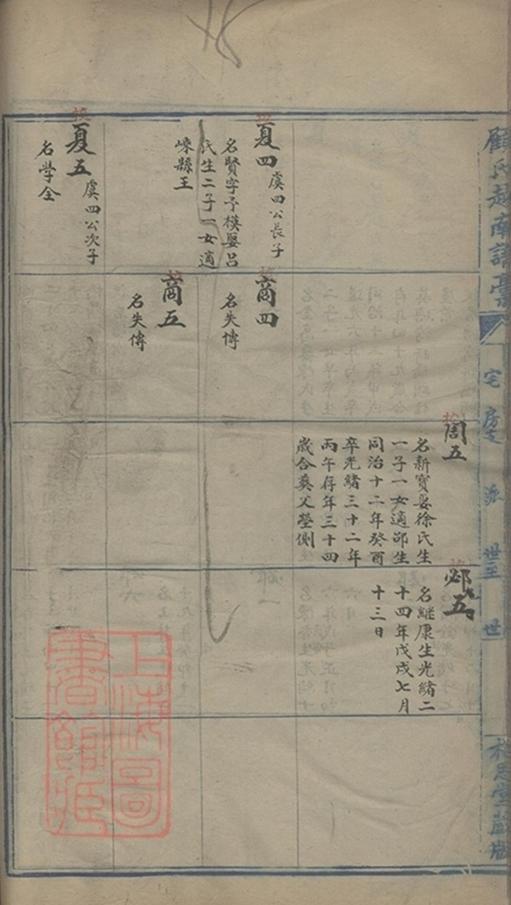 顧氏越南譜彙
宅 房 派 世至 世
周五
名新寶娶徐氏生
一子一女適邵生
同治十二年癸酉
卒光緒三十二年
丙午存年三十四
歲合葬父塋側
邲五
名繼康生光緒二
十四年戊戌七月
十三日
夏四
虞四公長子
名賢字予模娶呂
氏生二子一女適
嵊縣王
商四
名失傳
商五
名失傳
夏五
虞四公次子
名學全
上海圖
書館藏